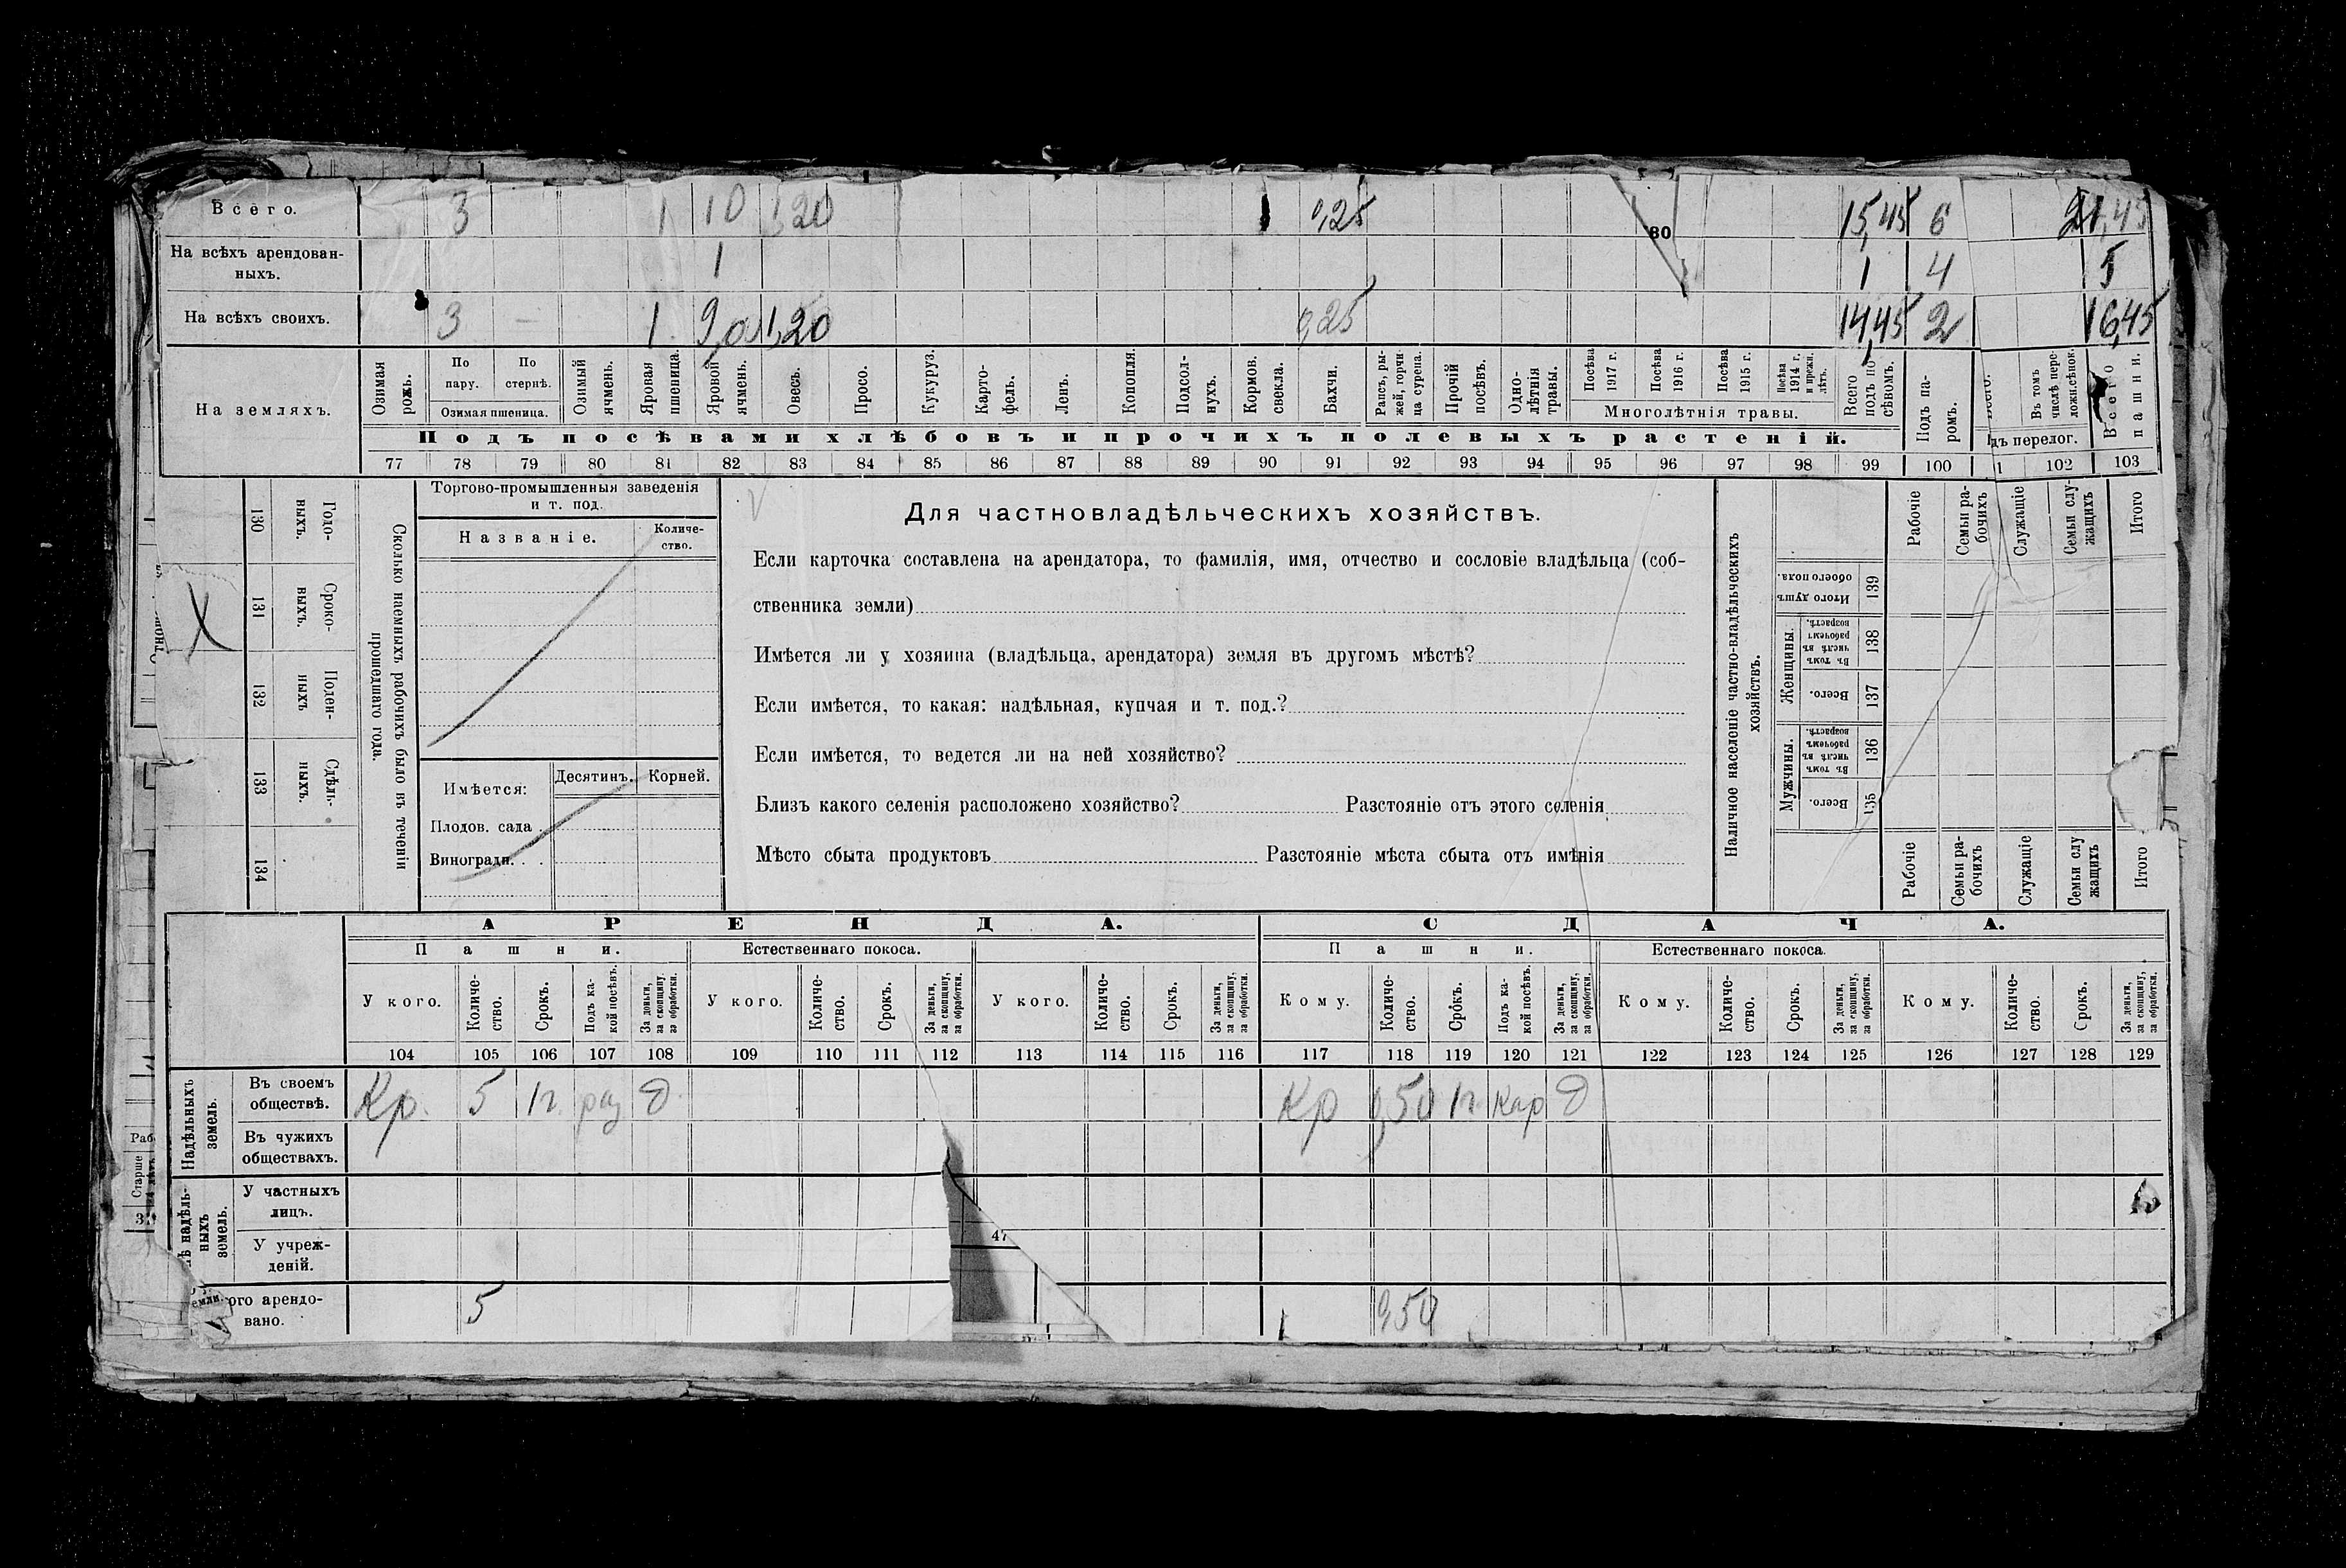 Всего. 3 1 10 1,20 0,25 15,45 6 21,45
80
На всѣхъ арендован-
ныхъ. 1 1 4 5
На всѣхъ своихъ. 3 – 1 9,0 1,20 0,25 14,45 2 16,45
На земляхъ.
Озимая рожь.
По пару.
По стернѣ.
Озимая пшеница.
Озимый ячмень.
Яровая пшеница.
Яровой ячмень.
Овесъ.
Просо.
Кукуруз.
Карто-
фель.
Ленъ.
Конопля.
Подсол-
нухъ.
Кормов.
свекла.
Бахчи.
Рапсъ, ры-
жей, горчи-
ца сурепа.
Прочій
посѣвъ.
Одно-
лѣтнія
травы.
Посѣва
1917 г.
Посѣва
1916 г.
Посѣва
1915 г.
Посѣва
1914 г.
и прежн.
лѣтъ.
Многолѣтнія травы.
Всего
подъ по-
сѣвомъ.
Подъ па-
ромъ.
Всего.
Въ томъ
числѣ пере-
ложн.сѣнок.
дъ перелог.
Всего
пашни.
Подъ посѣвами хлѣбовъ и прочихъ полевыхъ растеній.
77 78 79 80 81 82 83 84 85 86 87 88 89 90 91 92 93 94 95 96 97 98 99 100 1 102 103
130 Годо-
ныхъ.
131 Сроко-
ныхъ.
132 Поден-
ныхъ
133 Сдѣль-
ныхъ.
134
Х
Сколько наемныхъ рабочихъ было въ теченіи
прошедшаго года.
Торгово-промышленныя заведенія
и т. под.
Названіе. Количе-
ство.
Имѣется: Десятинъ. Корней.
Плодов. сада
Виноградн. . .
Для частновладѣльческихъ хозяйствъ.
Если карточка составлена на арендатора, то фамилія, имя, отчество и сословіе владѣльца (соб-
ственника земли)
Имѣется ли у хозяина (владѣльца, арендатора) земля въ другомъ мѣстѣ?
Если имѣется, то какая: надѣльная, купчая и т. под.?
Если имѣется, то ведется ли на ней хозяйство?
Близъ какого селенія расположено хозяйство? Разстояніе отъ этого селенія
Мѣсто сбыта продуктовъ Разстояніе мѣста сбыта отъ имѣнія
Наличное населеніе частно-владѣльческихъ
хозяйствъ.
Рабочіе
Семьи ра-
бочихъ
Служащіе
Семьи слу-
жащихъ
Итого
Итого душъ
обоего пола. 139
Женщины.
Въ томъ
числѣ въ
рабочемъ
возрастѣ. 138
Всего. 137
Мужчины.
Въ томъ
числѣ въ
рабочемъ
возрастѣ. 136
Всего. 135
Рабочіе
Семьи ра-
бочихъ
Служащіе
Семьи слу
жащихъ
Итого
АРЕНДА. СДАЧА.
Пашни. Естественнаго покоса. Пашни. Естественнаго покоса.
У кого.
Количе-
ство.
Срокъ.
Подъ ка-
кой посѣвъ.
За деньги,
за скопщину,
за обработки.
У кого.
Количе-
ство.
Срокъ.
За деньги,
за скопщину,
за обработки.
У кого.
Количе-
ство.
Срокъ.
За деньги,
за скопщину,
за обработки.
Кому.
Количе-
ство.
Срокъ.
Подъ ка-
кой посѣвъ.
За деньги,
за скопщину,
за обработки.
Кому.
Количе-
ство.
Срокъ.
За деньги,
за скопщину,
за обработки.
Кому.
Количе-
ство.
Срокъ.
За деньги,
за скопщину,
за обработки.
104 105 106 107 108 109 110 111 112 113 114 115 116 117 118 119 120 121 122 123 124 125 126 127 128 129
Надѣльныхъ
земель.
Въ своемъ
обществѣ. Кр. 5 1г. раз д. Кр 0,50 1г. кар д
Въ чужихъ
обществахъ.
ѣ надѣль-
ныхъ
земель.
У частныхъ
лицъ.
У учреж-
деній.
47
ого арендо-
вано. 5 0,50
Раб
Старше
земли.